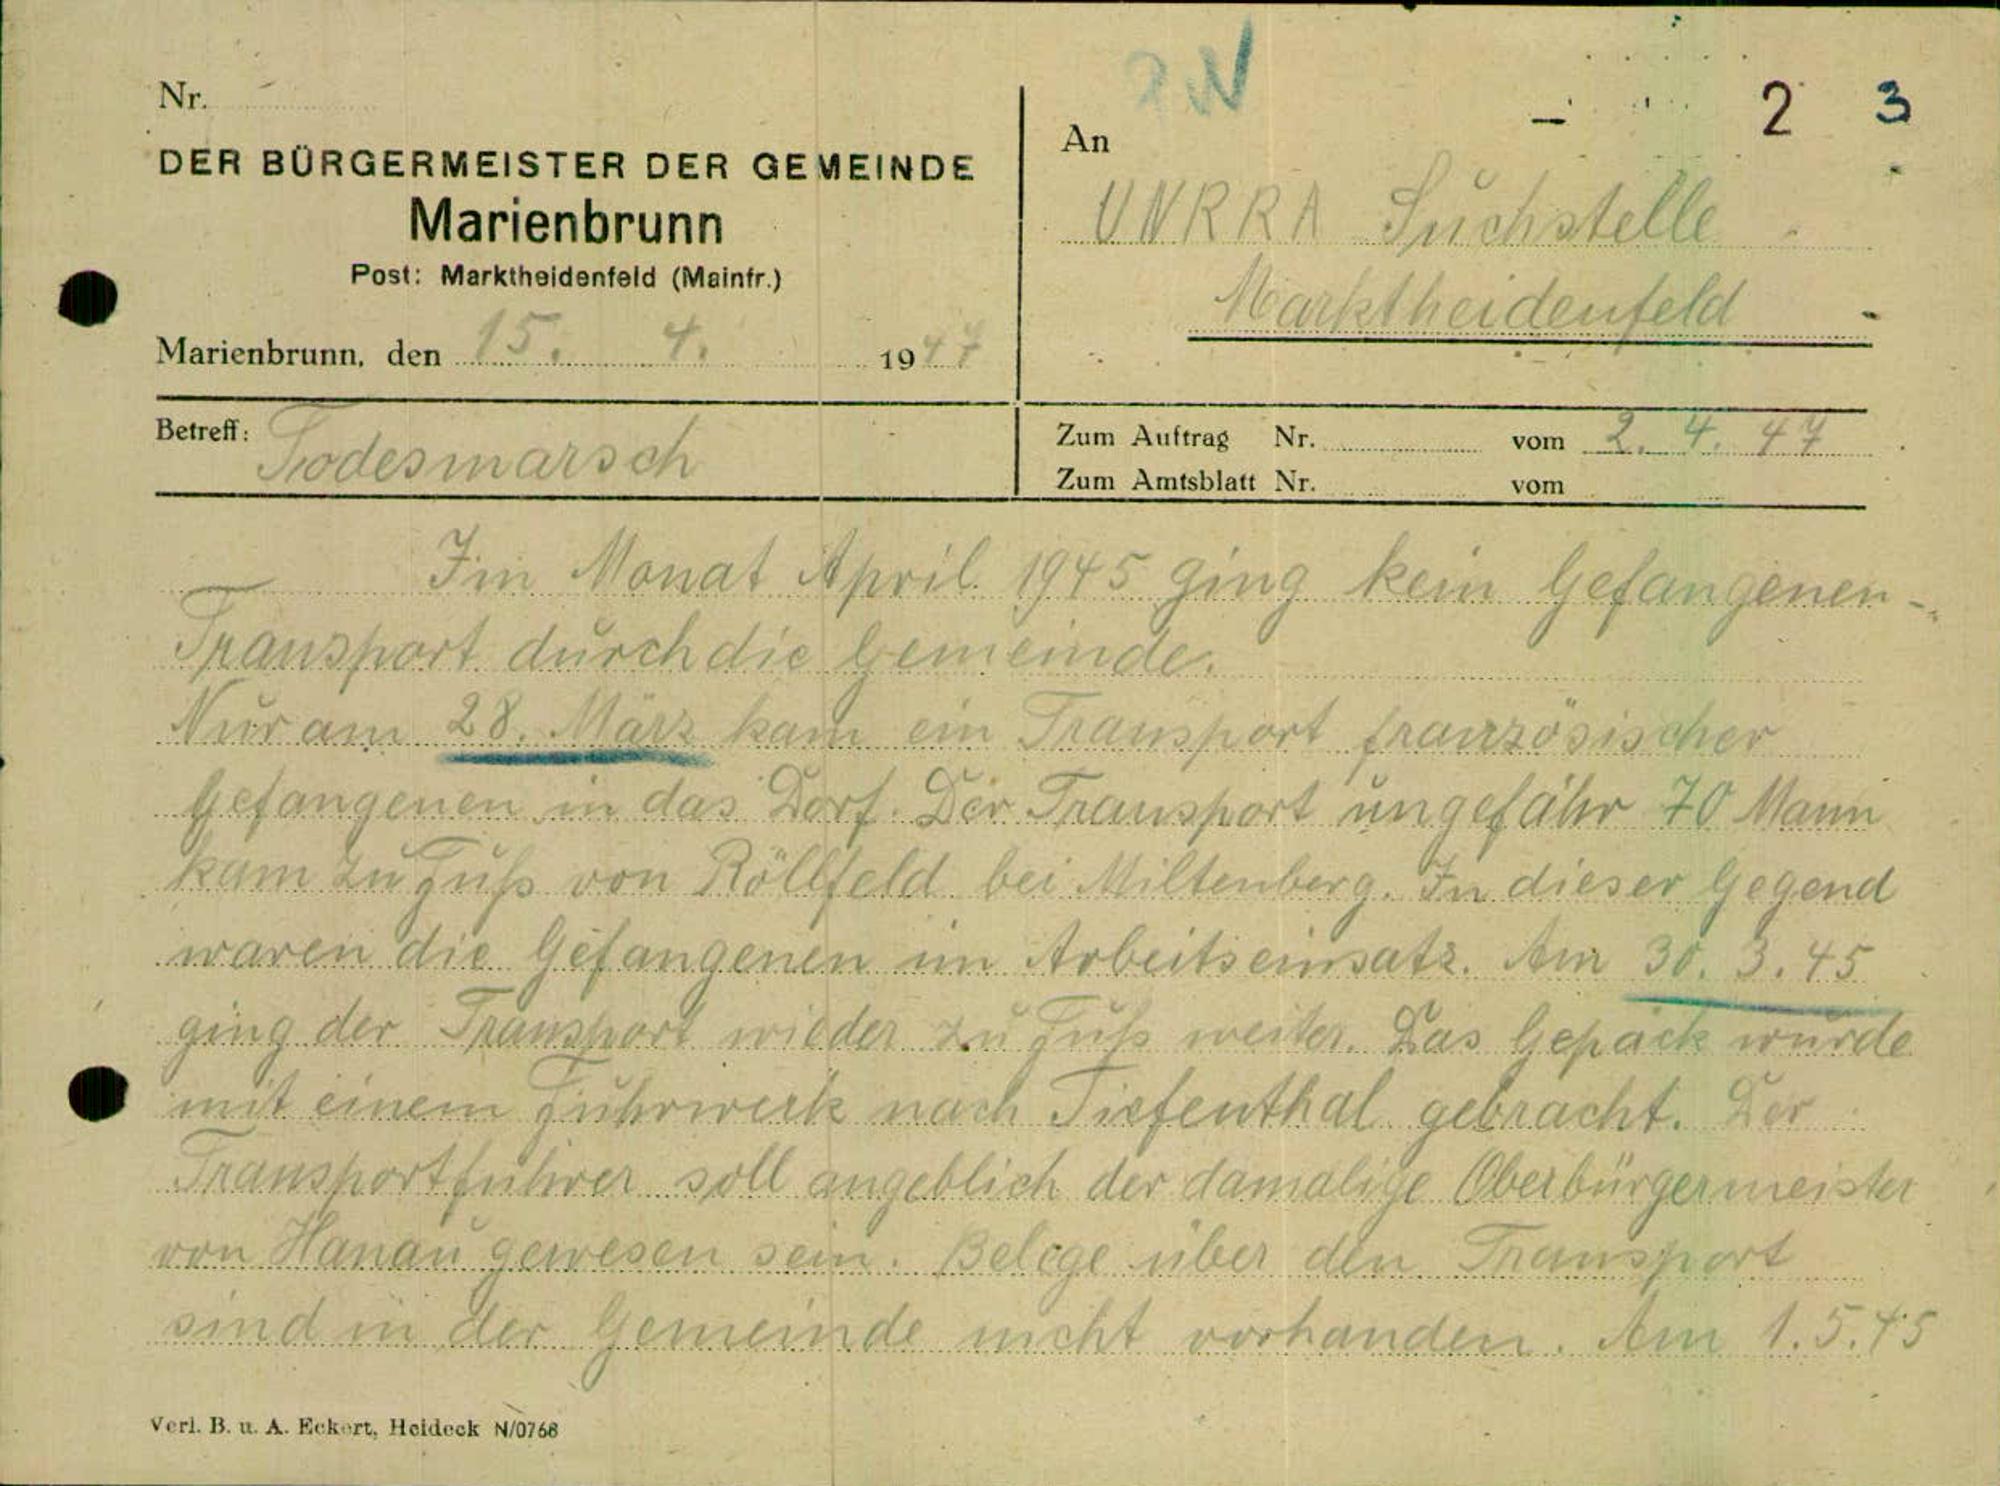 2 3
Nr.
DER BÜRGERMEISTER DER GEMEINDE
Marienbrunn
Post: Marktheidenfeld (Mainfr.)
Marienbrunn, den 15. 4. 1947
An
UNRRA Suchstelle
Marktheidenfeld
Betreff: Todesmarsch
Zum Auftrag Nr. vom 2. 4. 47
Zum Amtsblatt Nr. vom
Im Monat April 1945 ging kein Gefangenen-
Transport durch die Gemeinde.
Nur am 28. März kam ein Transport französischer
Gefangenen in das Dorf. Der Transport ungefähr 70 Mann
kam zu Fuß von Röllfeld bei Miltenberg. In dieser Gegend
waren die Gefangenen im Arbeitseinsatz. Am 30. 3. 45
ging der Transport wieder zu Fuß weiter. Das Gepäck wurde
mit einem Fuhrwerk nach Tiefenthal gebracht. Der
Transportführer soll angeblich der damalige Oberbürgermeister
von Hanau gewesen sein. Belege über den Transport
sind in der Gemeinde nicht vorhanden. Am 1.5.45
Verl. B. u. A. Eckert, Heideck N/0768